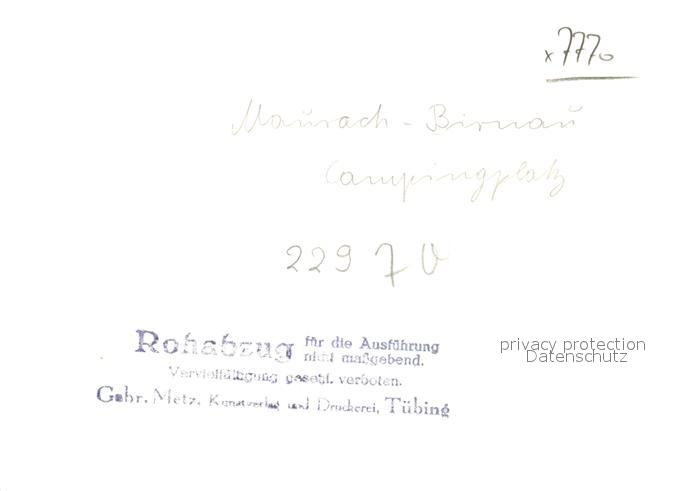 x 7770
Maŭrach - Birnaŭ
Campingplatz
229 7 V
Rohabzug für die Ausführung
nicht maßgebend.
Vervielfältigung gesetzl. verboten.
Gebr. Metz, Kunstverlag und Druckerei, Tübing
privacy protection
Datenschutz